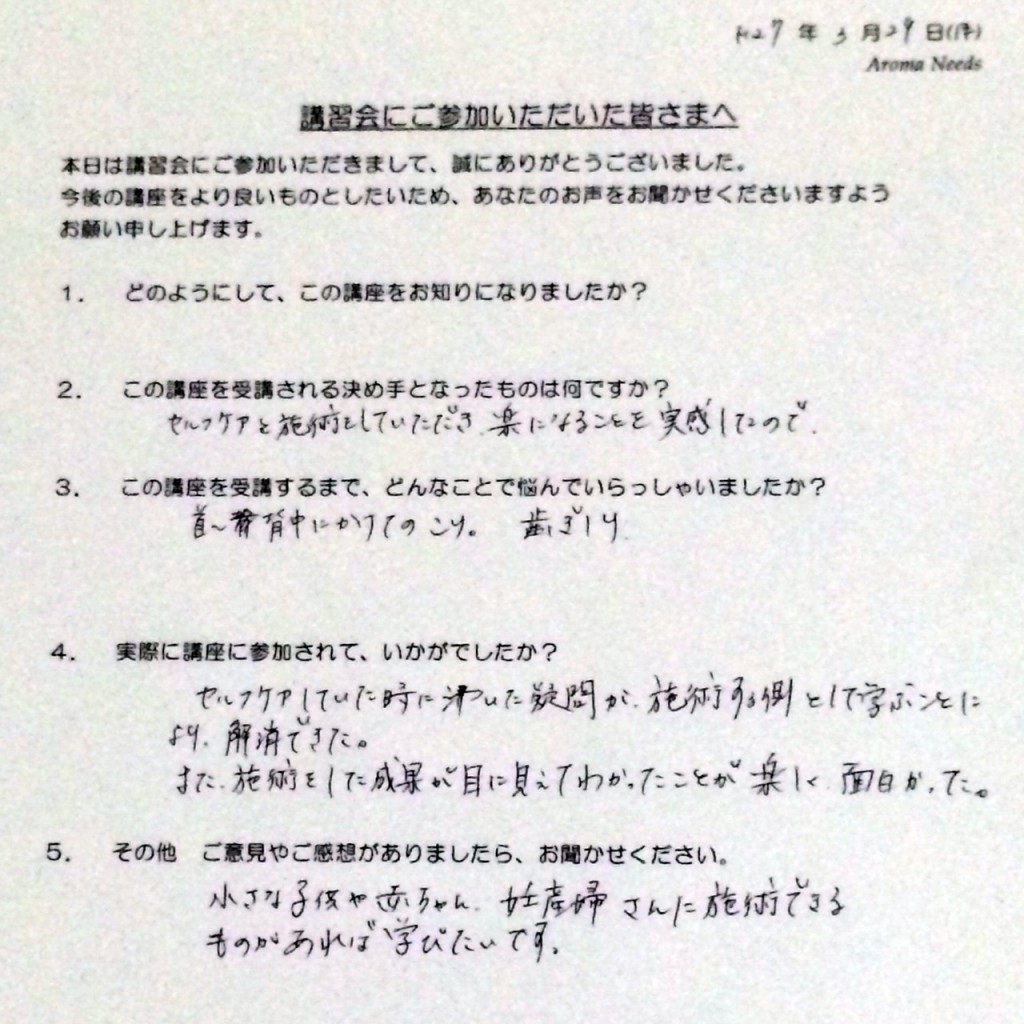 H27年3月29日(日)
Aroma Needs
講習会にご参加いただいた皆さまへ
本日は講習会にご参加いただきまして、誠にありがとうございました。
今後の講座をより良いものとしたいため、あなたのお声をお聞かせくださいますよう
お願い申し上げます。
1. どのようにして、この講座をお知りになりましたか？
2. この講座を受講される決め手となったものは何ですか？
セルフケアと施術をしていただき、楽になることを実感したので.
3. この講座を受講するまで、どんなことで悩んでいらっしゃいましたか？
首〜背中にかけてのこり。 歯ぎしり
4. 実際に講座に参加されて、いかがでしたか？
セルフケアしていた時に沸いた疑問が、施術する側として学ぶことに
より、解消できた。
また、施術をした成果が目に見えてわかったことが楽しく、面白かった。
5. その他 ご意見やご感想がありましたら、お聞かせください。
小さな子供や赤ちゃん、妊産婦さんに施術できる
ものがあれば学びたいです。